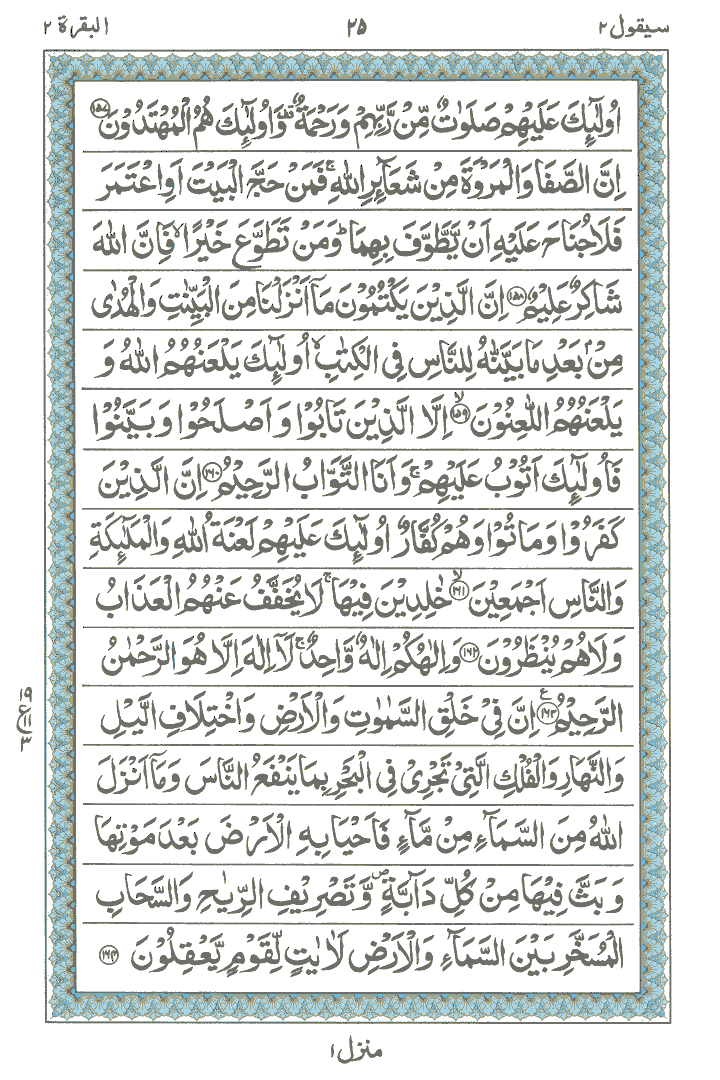 سيقول ٢ ٢٥ البقرة ٢
اُولٰٓئِكَ عَلَيْهِمْ صَلَوٰتٌ مِّنْ رَّبِّهِمْ وَرَحْمَةٌ ۟ وَاُولٰٓئِكَ هُمُ الْمُهْتَدُوْنَ ۝١٥٧
اِنَّ الصَّفَا وَالْمَرْوَةَ مِنْ شَعَآئِرِ اللّٰهِ ۚ فَمَنْ حَجَّ الْبَيْتَ اَوِ اعْتَمَرَ
فَلَا جُنَاحَ عَلَيْهِ اَنْ يَّطَّوَّفَ بِهِمَا ؕ وَمَنْ تَطَوَّعَ خَيْرًا ۙ فَاِنَّ اللّٰهَ
شَاكِرٌ عَلِيْمٌ ۝١٥٨ اِنَّ الَّذِيْنَ يَكْتُمُوْنَ مَآ اَنْزَلْنَا مِنَ الْبَيِّنٰتِ وَالْهُدٰى
مِنْۢ بَعْدِ مَا بَيَّنّٰهُ لِلنَّاسِ فِى الْكِتٰبِ ۙ اُولٰٓئِكَ يَلْعَنُهُمُ اللّٰهُ وَ
يَلْعَنُهُمُ اللّٰعِنُوْنَ ۙ‏ ۝١٥٩ اِلَّا الَّذِيْنَ تَابُوْا وَ اَصْلَحُوْا وَ بَيَّنُوْا
فَاُولٰٓئِكَ اَتُوْبُ عَلَيْهِمْ ۚ وَاَنَا التَّوَّابُ الرَّحِيْمُ ۝١٦٠ اِنَّ الَّذِيْنَ
كَفَرُوْا وَمَاتُوْا وَهُمْ كُفَّارٌ اُولٰٓئِكَ عَلَيْهِمْ لَعْنَةُ اللّٰهِ وَالْمَلٰٓئِكَةِ
وَالنَّاسِ اَجْمَعِيْنَ ۙ ۝١٦١ خٰلِدِيْنَ فِيْهَا ۚ لَا يُخَفَّفُ عَنْهُمُ الْعَذَابُ
وَلَا هُمْ يُنْظَرُوْنَ ۝١٦٢ وَاِلٰهُكُمْ اِلٰهٌ وَّاحِدٌ ۚ لَآ اِلٰهَ اِلَّا هُوَ الرَّحْمٰنُ
الرَّحِيْمُ ۝١٦٣ ع اِنَّ فِىْ خَلْقِ السَّمٰوٰتِ وَالْاَرْضِ وَاخْتِلَافِ الَّيْلِ
١٩
ع ١١
٣
وَالنَّهَارِ وَالْفُلْكِ الَّتِىْ تَجْرِىْ فِى الْبَحْرِ بِمَا يَنْفَعُ النَّاسَ وَمَآ اَنْزَلَ
اللّٰهُ مِنَ السَّمَآءِ مِنْ مَّآءٍ فَاَحْيَا بِهِ الْاَرْضَ بَعْدَ مَوْتِهَا
وَ بَثَّ فِيْهَا مِنْ كُلِّ دَآبَّةٍ ۪ وَّ تَصْرِيْفِ الرِّيٰحِ وَالسَّحَابِ
الْمُسَخَّرِ بَيْنَ السَّمَآءِ وَالْاَرْضِ لَاٰيٰتٍ لِّقَوْمٍ يَّعْقِلُوْنَ ۝١٦٤
منزل ١